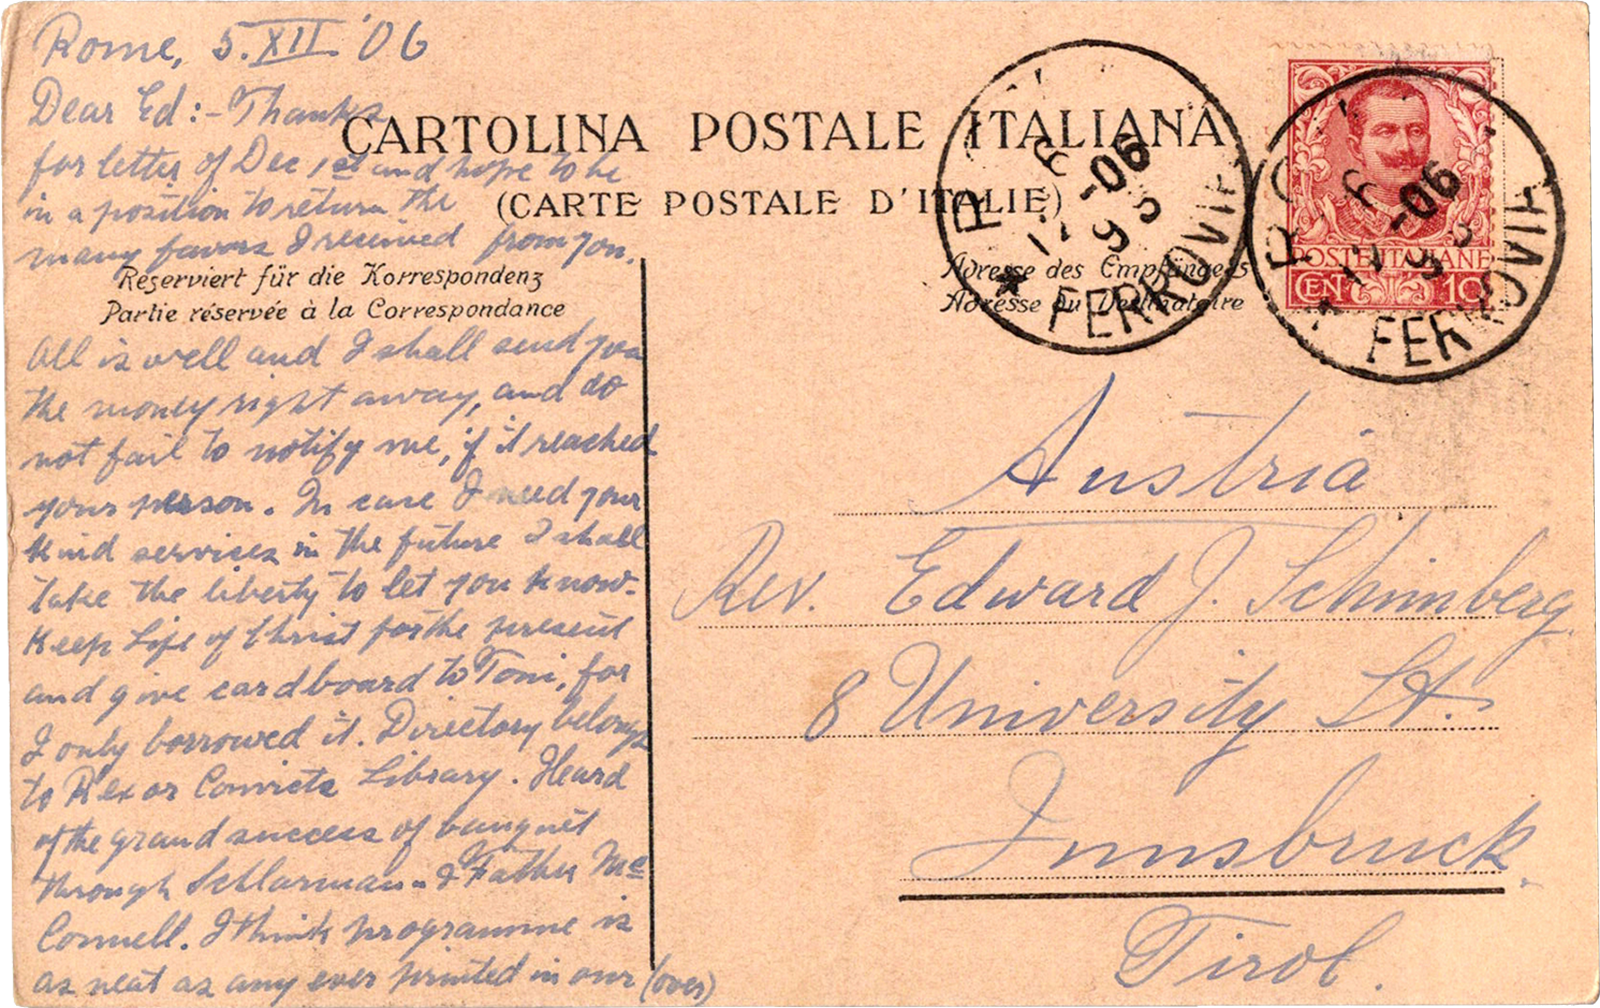 Rome, 5.XII.'06
Dear Ed:- Thanks
for letter of Dec 1st and hope to be
in a position to return the
many favors I received from you.
CARTOLINA POSTALE ITALIANA
(CARTE POSTALE D'ITALIE)
Reserviert für die Korrespondenz
Partie réservée à la Correspondance
All is well and I shall send you
the money right away, and do
not fail to notify me, if it reached
your person. In case I need your
kind services in the future I shall
take the liberty to let you know.
Keep Life of Christ for the present
and give cardboard to Toni, for
I only borrowed it. Directory belongs
to Rex or Convicts Library. Heard
of the grand success of banquet
through Schlarman & Father Mc
Connell. I think programme is
as neat as any ever printed in our (over)
Adresse des Empfängers
Adresse du Destinataire
ROMA
12-06
FERROVIA
ROMA
12-06
FERROVIA
POSTE ITALIANE
CEN 10
Austria
Rev. Edward J. Schimberg
8 University St.
Innsbruck.
Tirol.